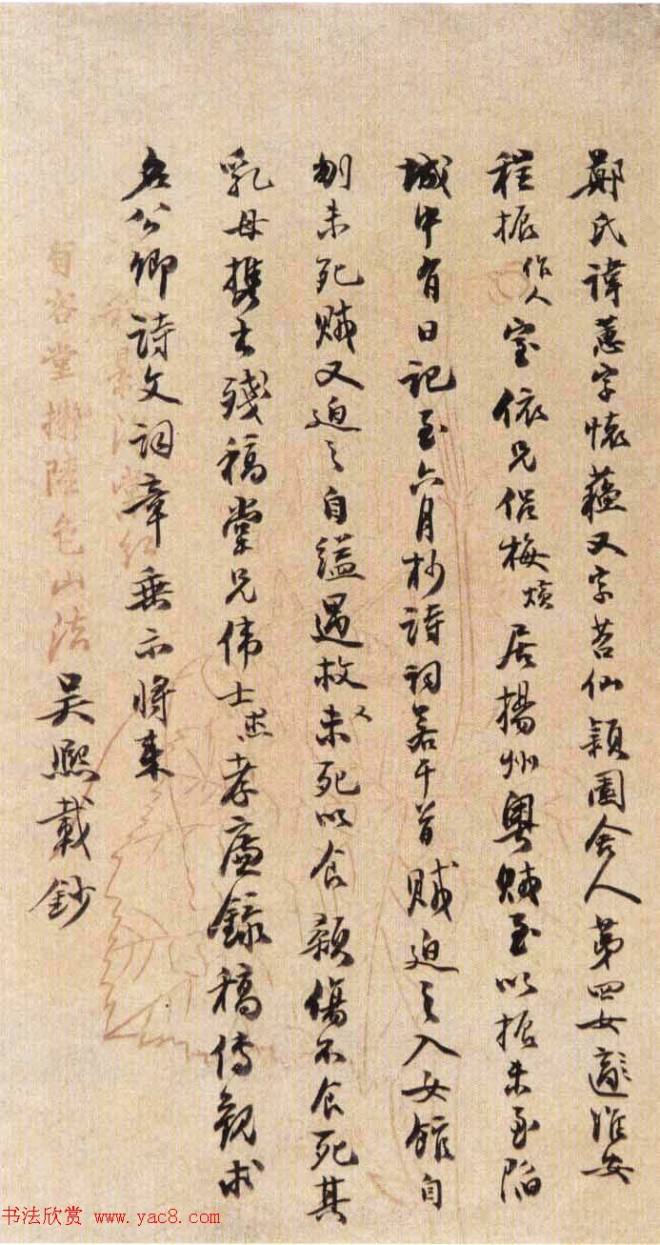 鄭氏諱蕙字懷蘊又字苕仙穎園舍人第四女適淮安
程振作人室依兄侶梅燌居揚州粵賊至以振未至陷
城中有日記至六月抄詩詞若干首賊迫之入女館自
刎未死賊又迫之自縊遇救又未死以食顙傷不食死其
乳母携出殘稿堂兄偉士孝廉錄稿傳觀求
名公卿詩文詞章垂示將來
吳熙載鈔
書法欣赏 www.yac8.com